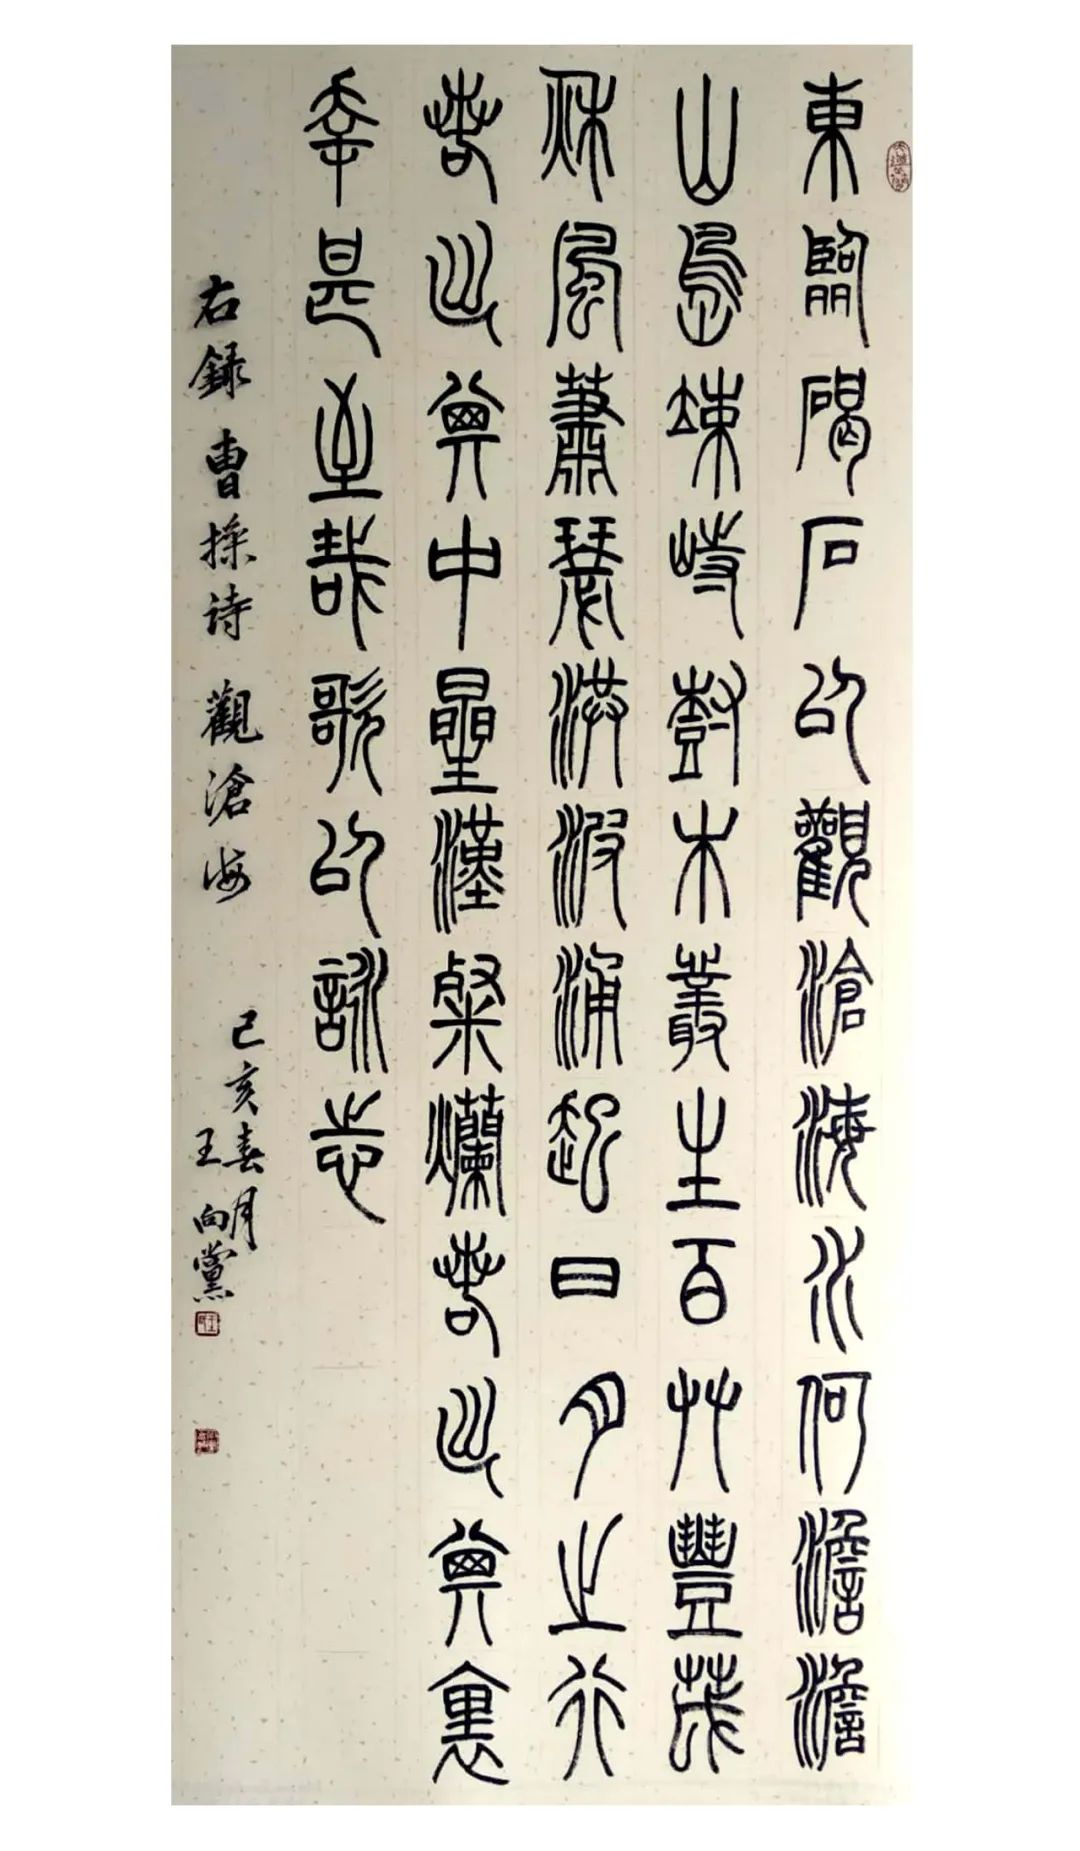 東臨碣石以觀滄海水何澹澹
山島竦峙樹木叢生百艸豐茂
秋風蕭瑟洪波涌起日月之行
若出其中星漢粲爛若出其裏
幸甚至哉歌以詠志
右録曹操诗觀滄海
己亥春月
王向黨